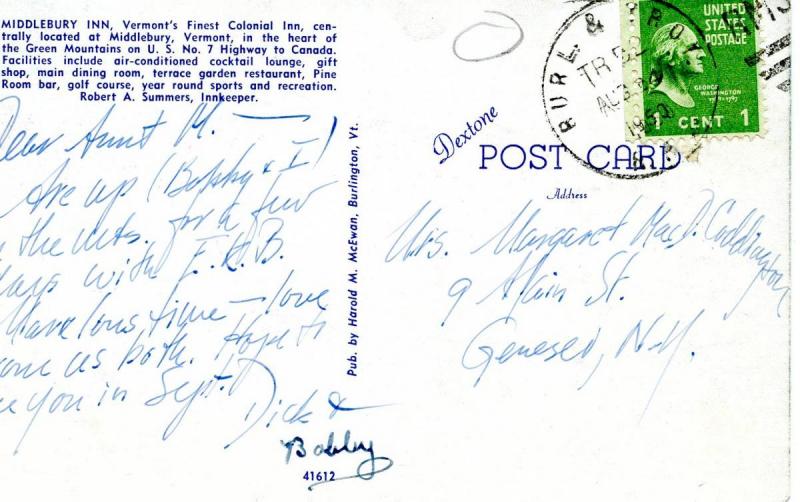 MIDDLEBURY INN, Vermont's Finest Colonial Inn, cen-
trally located at Middlebury, Vermont, in the heart of
the Green Mountains on U. S. No. 7 Highway to Canada.
Facilities include air-conditioned cocktail lounge, gift
shop, main dining room, terrace garden restaurant, Pine
Room bar, golf course, year round sports and recreation.
Robert A. Summers, Innkeeper.
Dear Aunt M. —
Are up (Bobby & I)
the mts. for a few
days with E.K.B.
Marvelous time — love
from us both. Hope to
see you in Sept.
Dick &
Bobby
41612
Pub. by Harold M. McEwan, Burlington, Vt.
Dextone
POST CARD
Address
Mrs. Margaret MacD. Coddington
9 Main St.
Geneseo, N.Y.
BURL &
TR
AUG
1950
UNITED
STATES
POSTAGE
GEORGE
WASHINGTON
1 CENT 1